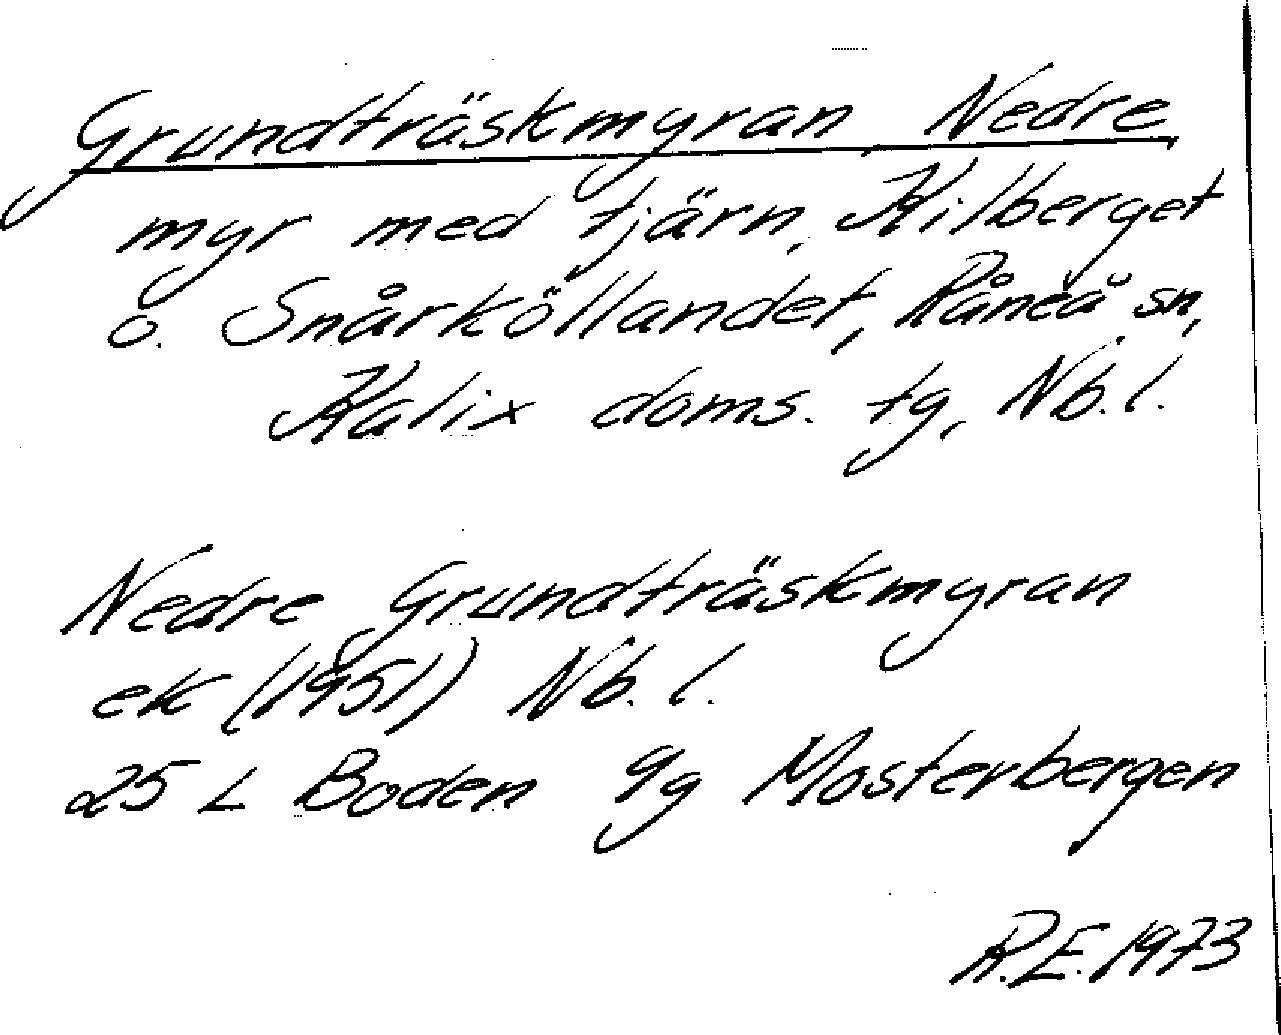 Grundträskmyran, Nedre
myr med tjärn, Kilberget
o. Snårköllandet, Råneå sn,
Kalix doms. tg, Nb. l.
Nedre Grundträskmyran
ek (1951) Nb. l.
25 L Boden 9g Mosterbergen
R.E. 1973